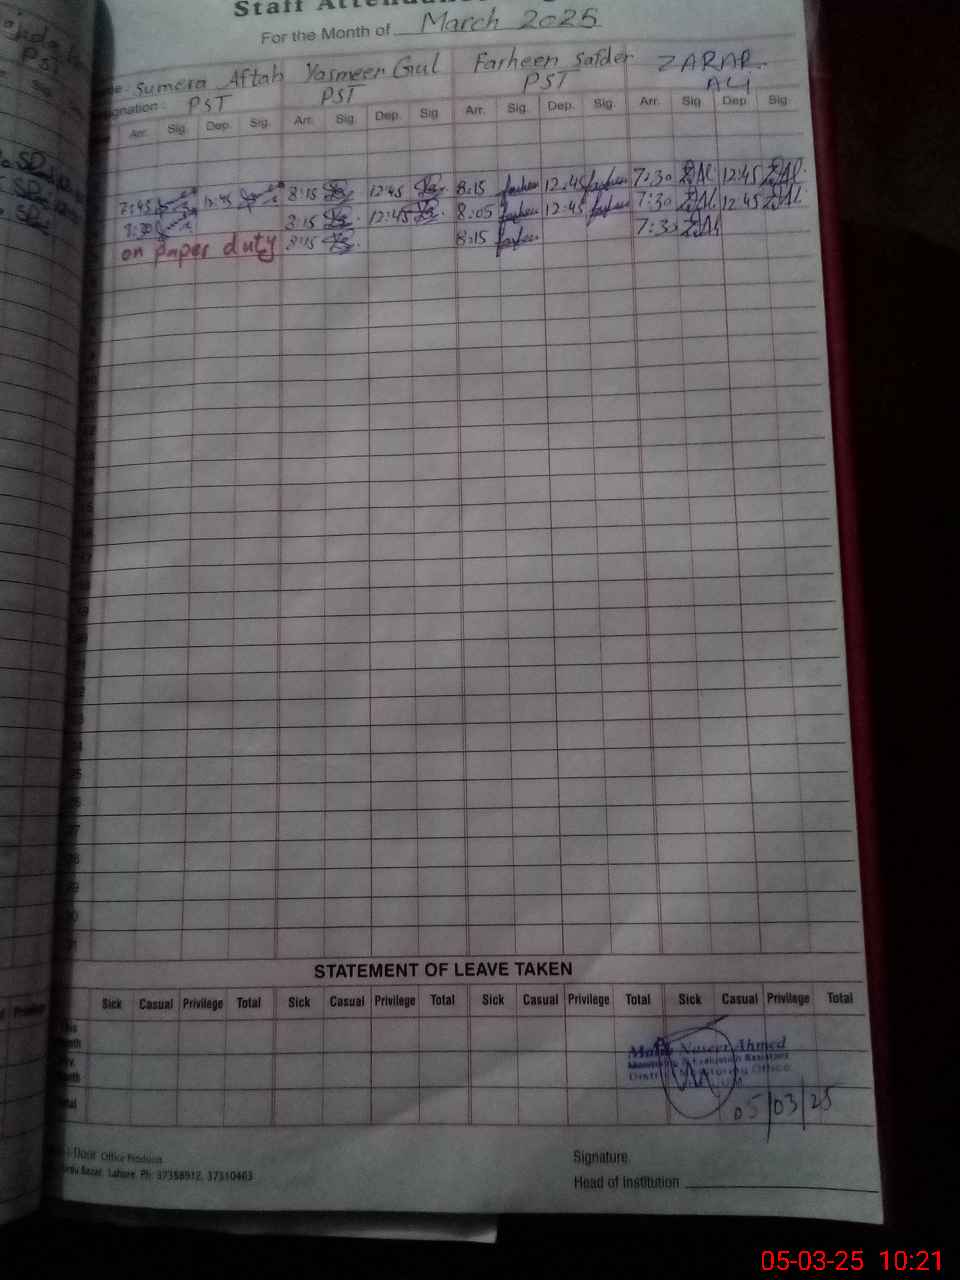 Staff Attendance
For the Month of March 2025
Sumera Aftab Yasmeen Gul Farheen Safder ZARAR ALI
Designation: PST PST PST
Arr. Sig. Dep. Sig. Arr. Sig. Dep. Sig. Arr. Sig. Dep. Sig. Arr. Sig. Dep. Sig.
7:45 12:45 8:15 12:45 8:15 farheen 12:45 farheen 7:30 ZAli 12:45 ZAli
7:30 8:15 12:45 8:05 farheen 12:45 farheen 7:30 ZAli 12:45 ZAli
on paper duty 8:15 8:15 farheen 7:30 ZAli
STATEMENT OF LEAVE TAKEN
Sick Casual Privilege Total Sick Casual Privilege Total Sick Casual Privilege Total Sick Casual Privilege Total
Naseer Ahmed
Monitoring & Evaluation Assistant
District Monitoring Office
05/03/25
Office Products
Bazar, Lahore. Ph: 37358912, 37310463
Signature.
Head of Institution
05-03-25 10:21